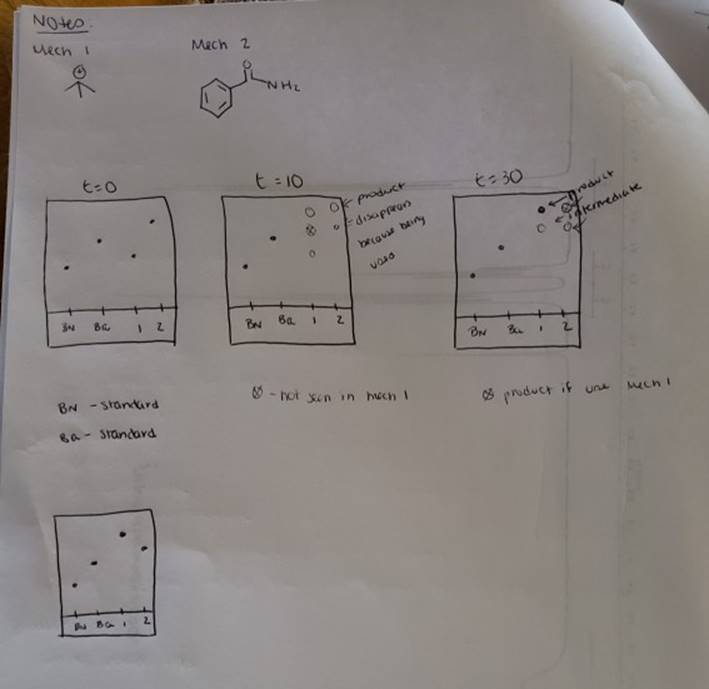 Notes:
Mech 1
Mech 2
O
NH2
t=0
t=10
t=30
product
disappears
because being
used
product
intermediate
BN Ba 1 2
BN Ba 1 2
BN Ba 1 2
BN - standard
Ba - standard
⊗ - not seen in mech 1
⊗ product if use mech 1
BN Ba 1 2